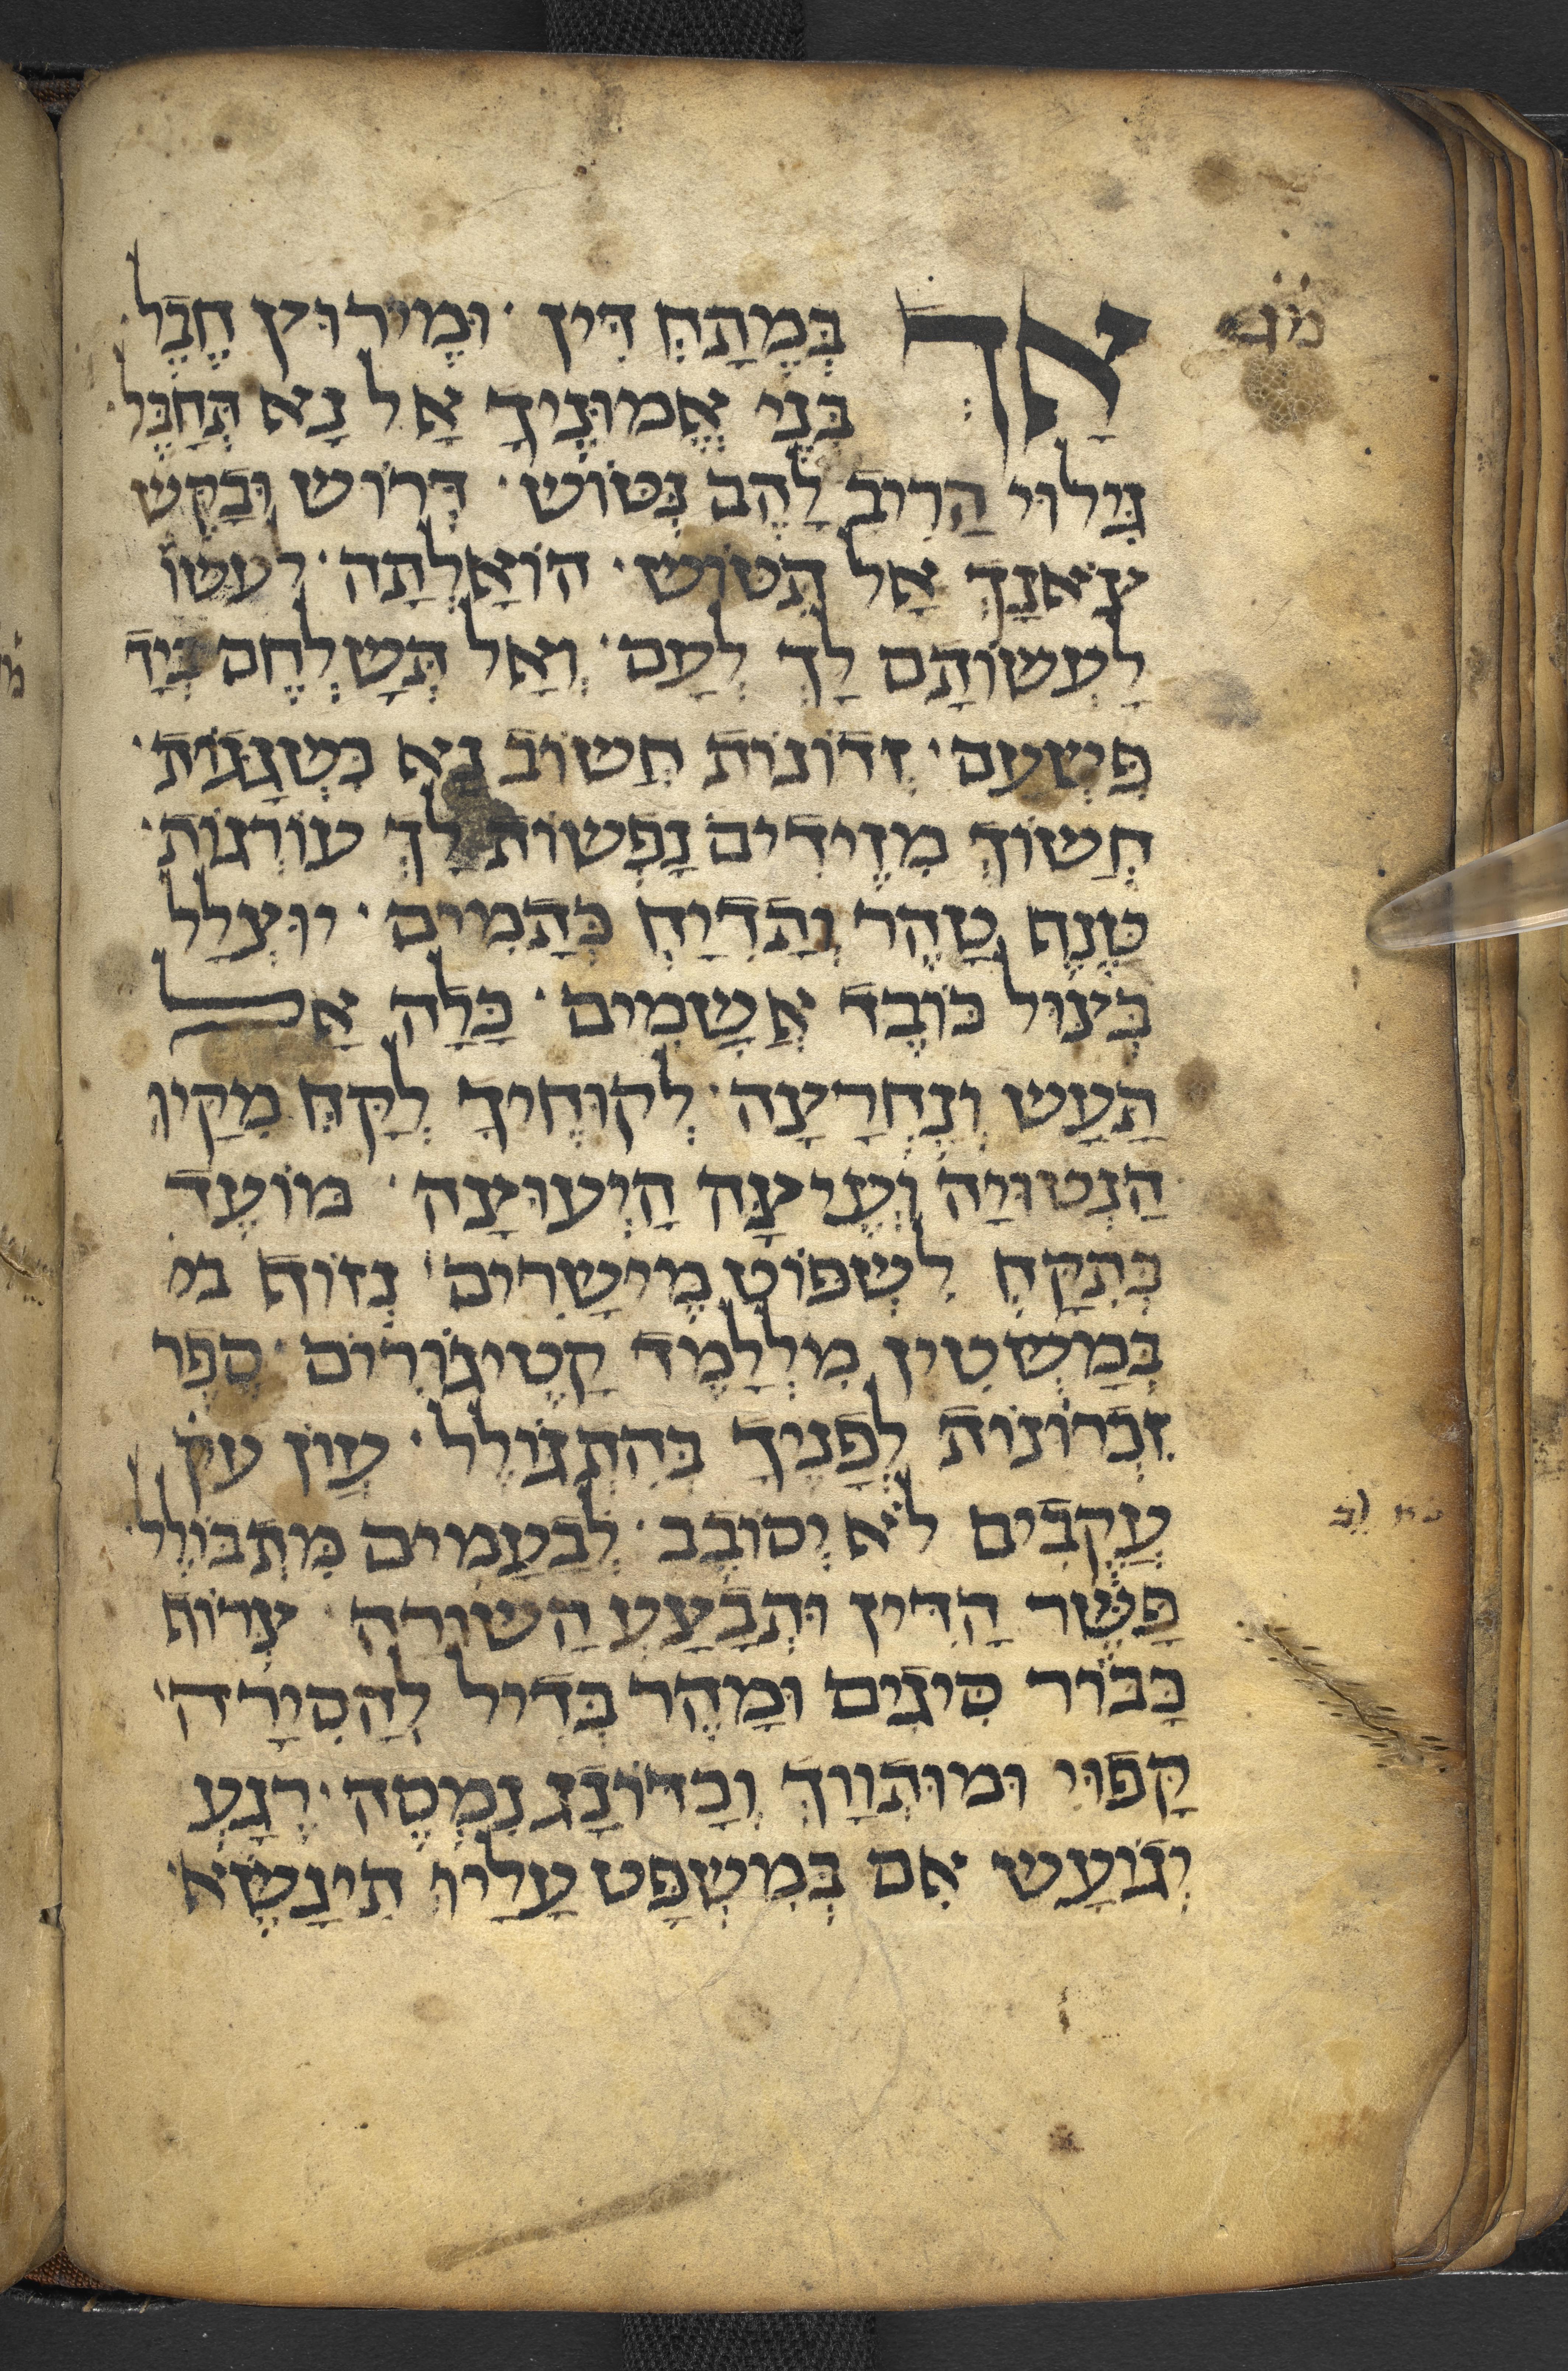 מׄגׄ
אָךְ בְּמֶתַח דִּין · וּמֵירוּץ חֶבֶל ·
בְּנֵי אֱמוּנֶיךָ אַל נָא תְּחַבֶּל ·
גִּילוּי הַרִיב לָהֶם נְטוֹשׁ · דְּרוֹשׁ וּבַקֵּשׁ
צֹאנָךְ אַל תִּטוֹשׁ · הוֹאָלְתָה · לעשו
לַעְשׂוֹתָם לָךְ לְעָם · וְאַל תְּשַׁלְחֵם בְּיַד
פִּשְׁעָם · זְדוֹנוֹת חֲשׁוֹב נָא כִּשְׁגָגוֹת ·
חֲשׂוֹךְ מִזֵּידִים נַפְשׁוֹת לָךְ עוֹרְגוֹת ·
טַנֵּף טַהֵר וְתַדִיחַ כְּתָמִים · יוּצְלַל
בְּצוּל כּוֹבֶד אֲשָׁמִים · כָּלָה אַל
תַּעַשׂ וְנֶחְרָצָה · לְקוּחֶיךָ לְקַח מִקַּיו
הַנְּטוּיָה וְעֵיצָה הַיְעוּצָה · מוֹעֵד
כְּתִקַּח לִשְׁפּוֹט מֵישָׁרִים · נְזוֹף בּו
בְּמַשְׂטִין מִלְלַמֵּד קָטֵיגוֹרִים · סֵפֶר
זִכְרוֹנוֹת לְפָנֶיךָ בְּהִתְגּוֹלֵל · עֲוֹן עק
עֲקֵבִים לֹא יְסוֹבֵב · לְבַעַמִים מִתְבּוֹלֵל ·
פַּשֵּׁר הַדִּין וּתְבַצַּע הַשׁוּרָה · צְרוֹף
כַּבּוֹר סִיגִים וּמַהֵר בְּדִיל לְהַסִירָה ·
קָפּוּי וּמוּתְּוָךְ וְכַדּוֹנַג נִמְסֶה · רֶגַע
יְגוֹעַשׁ אִם בְּמִשְׁפָּט עָלָיו תִּינָשֵׂא ·